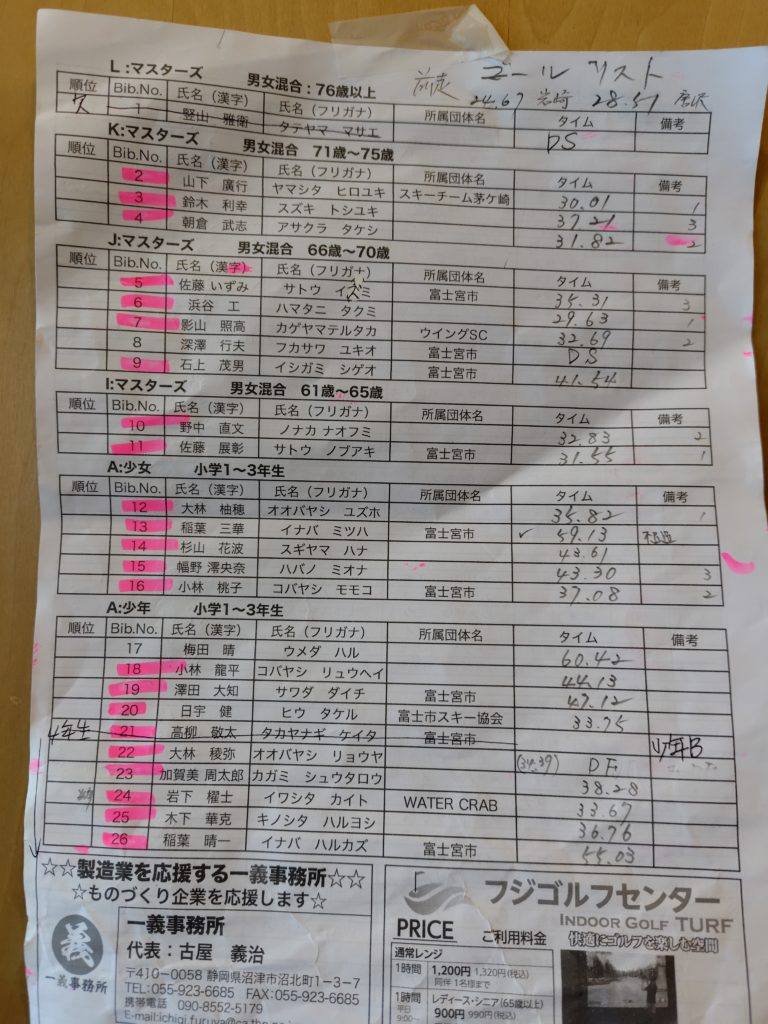 前走 ゴール リスト
24.67 岩崎 28.51
L:マスターズ 男女混合:76歳以上
順位 Bib.No. 氏名(漢字) 氏名(フリガナ) 所属団体名 タイム 備考
欠 1 竪山 雅衛 タテヤマ マサエ DS
K:マスターズ 男女混合 71歳〜75歳
順位 Bib.No. 氏名(漢字) 氏名(フリガナ) 所属団体名 タイム 備考
2 山下 廣行 ヤマシタ ヒロユキ スキーチーム茅ケ崎 30.01 1
3 鈴木 利幸 スズキ トシユキ 37.21 3
4 朝倉 武志 アサクラ タケシ 31.82 2
J:マスターズ 男女混合 66歳〜70歳
順位 Bib.No. 氏名(漢字) 氏名(フリガナ) 所属団体名 タイム 備考
5 佐藤 いずみ サトウ イズミ 富士宮市 35.31 3
6 浜谷 工 ハマタニ タクミ 29.63 1
7 影山 照高 カゲヤマテルタカ ウイングSC 32.69 2
8 深澤 行夫 フカサワ ユキオ 富士宮市 DS
9 石上 茂男 イシガミ シゲオ 富士宮市 41.54
I:マスターズ 男女混合 61歳〜65歳
順位 Bib.No. 氏名(漢字) 氏名(フリガナ) 所属団体名 タイム 備考
10 野中 直文 ノナカ ナオフミ 32.83 2
11 佐藤 展彰 サトウ ノブアキ 富士宮市 31.55 1
A:少女 小学1〜3年生
順位 Bib.No. 氏名(漢字) 氏名(フリガナ) 所属団体名 タイム 備考
12 大林 柚穂 オオバヤシ ユズホ 35.82 1
13 稲葉 三華 イナバ ミツハ 富士宮市 ✓ 59.13
14 杉山 花波 スギヤマ ハナ 43.61
15 幅野 澪央奈 ハバノ ミオナ 43.30 3
16 小林 桃子 コバヤシ モモコ 富士宮市 37.08 2
A:少年 小学1〜3年生
順位 Bib.No. 氏名(漢字) 氏名(フリガナ) 所属団体名 タイム 備考
17 梅田 晴 ウメダ ハル 60.42
18 小林 龍平 コバヤシ リュウヘイ 44.13
19 澤田 大知 サワダ ダイチ 富士宮市 47.12
20 日宇 健 ヒウ タケル 富士市スキー協会 33.75
4年生 21 高柳 敬太 タカヤナギ ケイタ 富士宮市 少年B
22 大林 稜弥 オオバヤシ リョウヤ (34.39) DF
23 加賀美 周太郎 カガミ シュウタロウ 38.28
24 岩下 櫂士 イワシタ カイト WATER CRAB 33.67
25 木下 華克 キノシタ ハルヨシ 36.76
26 稲葉 晴一 イナバ ハルカズ 富士宮市 55.03
☆☆製造業を応援する一義事務所☆☆
☆ものづくり企業を応援します☆
義
一義事務所
一義事務所
代表:古屋 義治
〒410−0058 静岡県沼津市沼北町1−3−7
TEL:055-923-6685 FAX:055-923-6685
携帯電話 090-8552-5179
フジゴルフセンター
INDOOR GOLF TURF
PRICE ご利用料金
快適にゴルフを楽しむ空間
通常レンジ
1時間 1,200円 1,320円(税込)
同伴 1名様まで
1時間 レディース・シニア(65歳以上)
平日 900円 990円(税込)
9:00〜